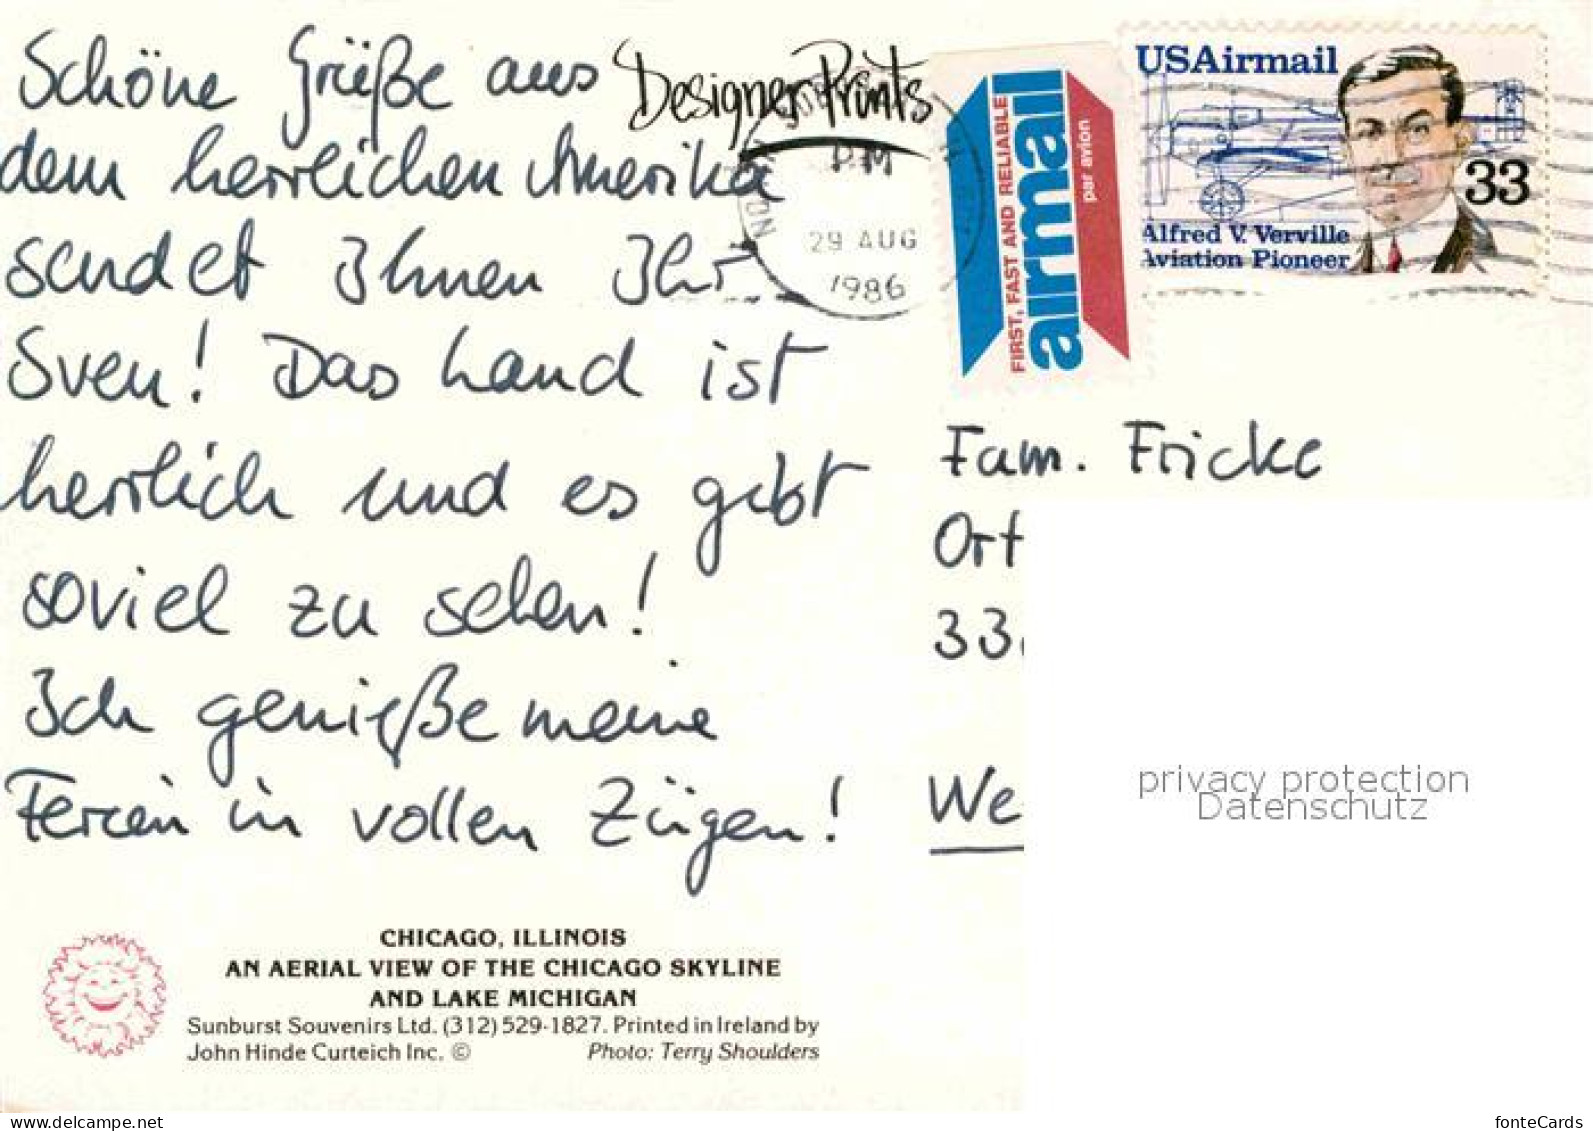 Schöne Grüße aus
dem herrlichen Amerika
sendet Ihnen Ihr
Sven! Das Land ist
herrlich und es gibt
soviel zu sehen!
Ich genieße meine
Ferien in vollen Zügen!
Designer Prints
PM
29 AUG
1986
FIRST, FAST AND RELIABLE
airmail
par avion
USAirmail
33
Alfred V. Verville
Aviation Pioneer
Fam. Fricke
Ort
33
We
privacy protection
Datenschutz
CHICAGO, ILLINOIS
AN AERIAL VIEW OF THE CHICAGO SKYLINE
AND LAKE MICHIGAN
Sunburst Souvenirs Ltd. (312) 529-1827. Printed in Ireland by
John Hinde Curteich Inc. © Photo: Terry Shoulders
www.delcampe.net
fonteCards